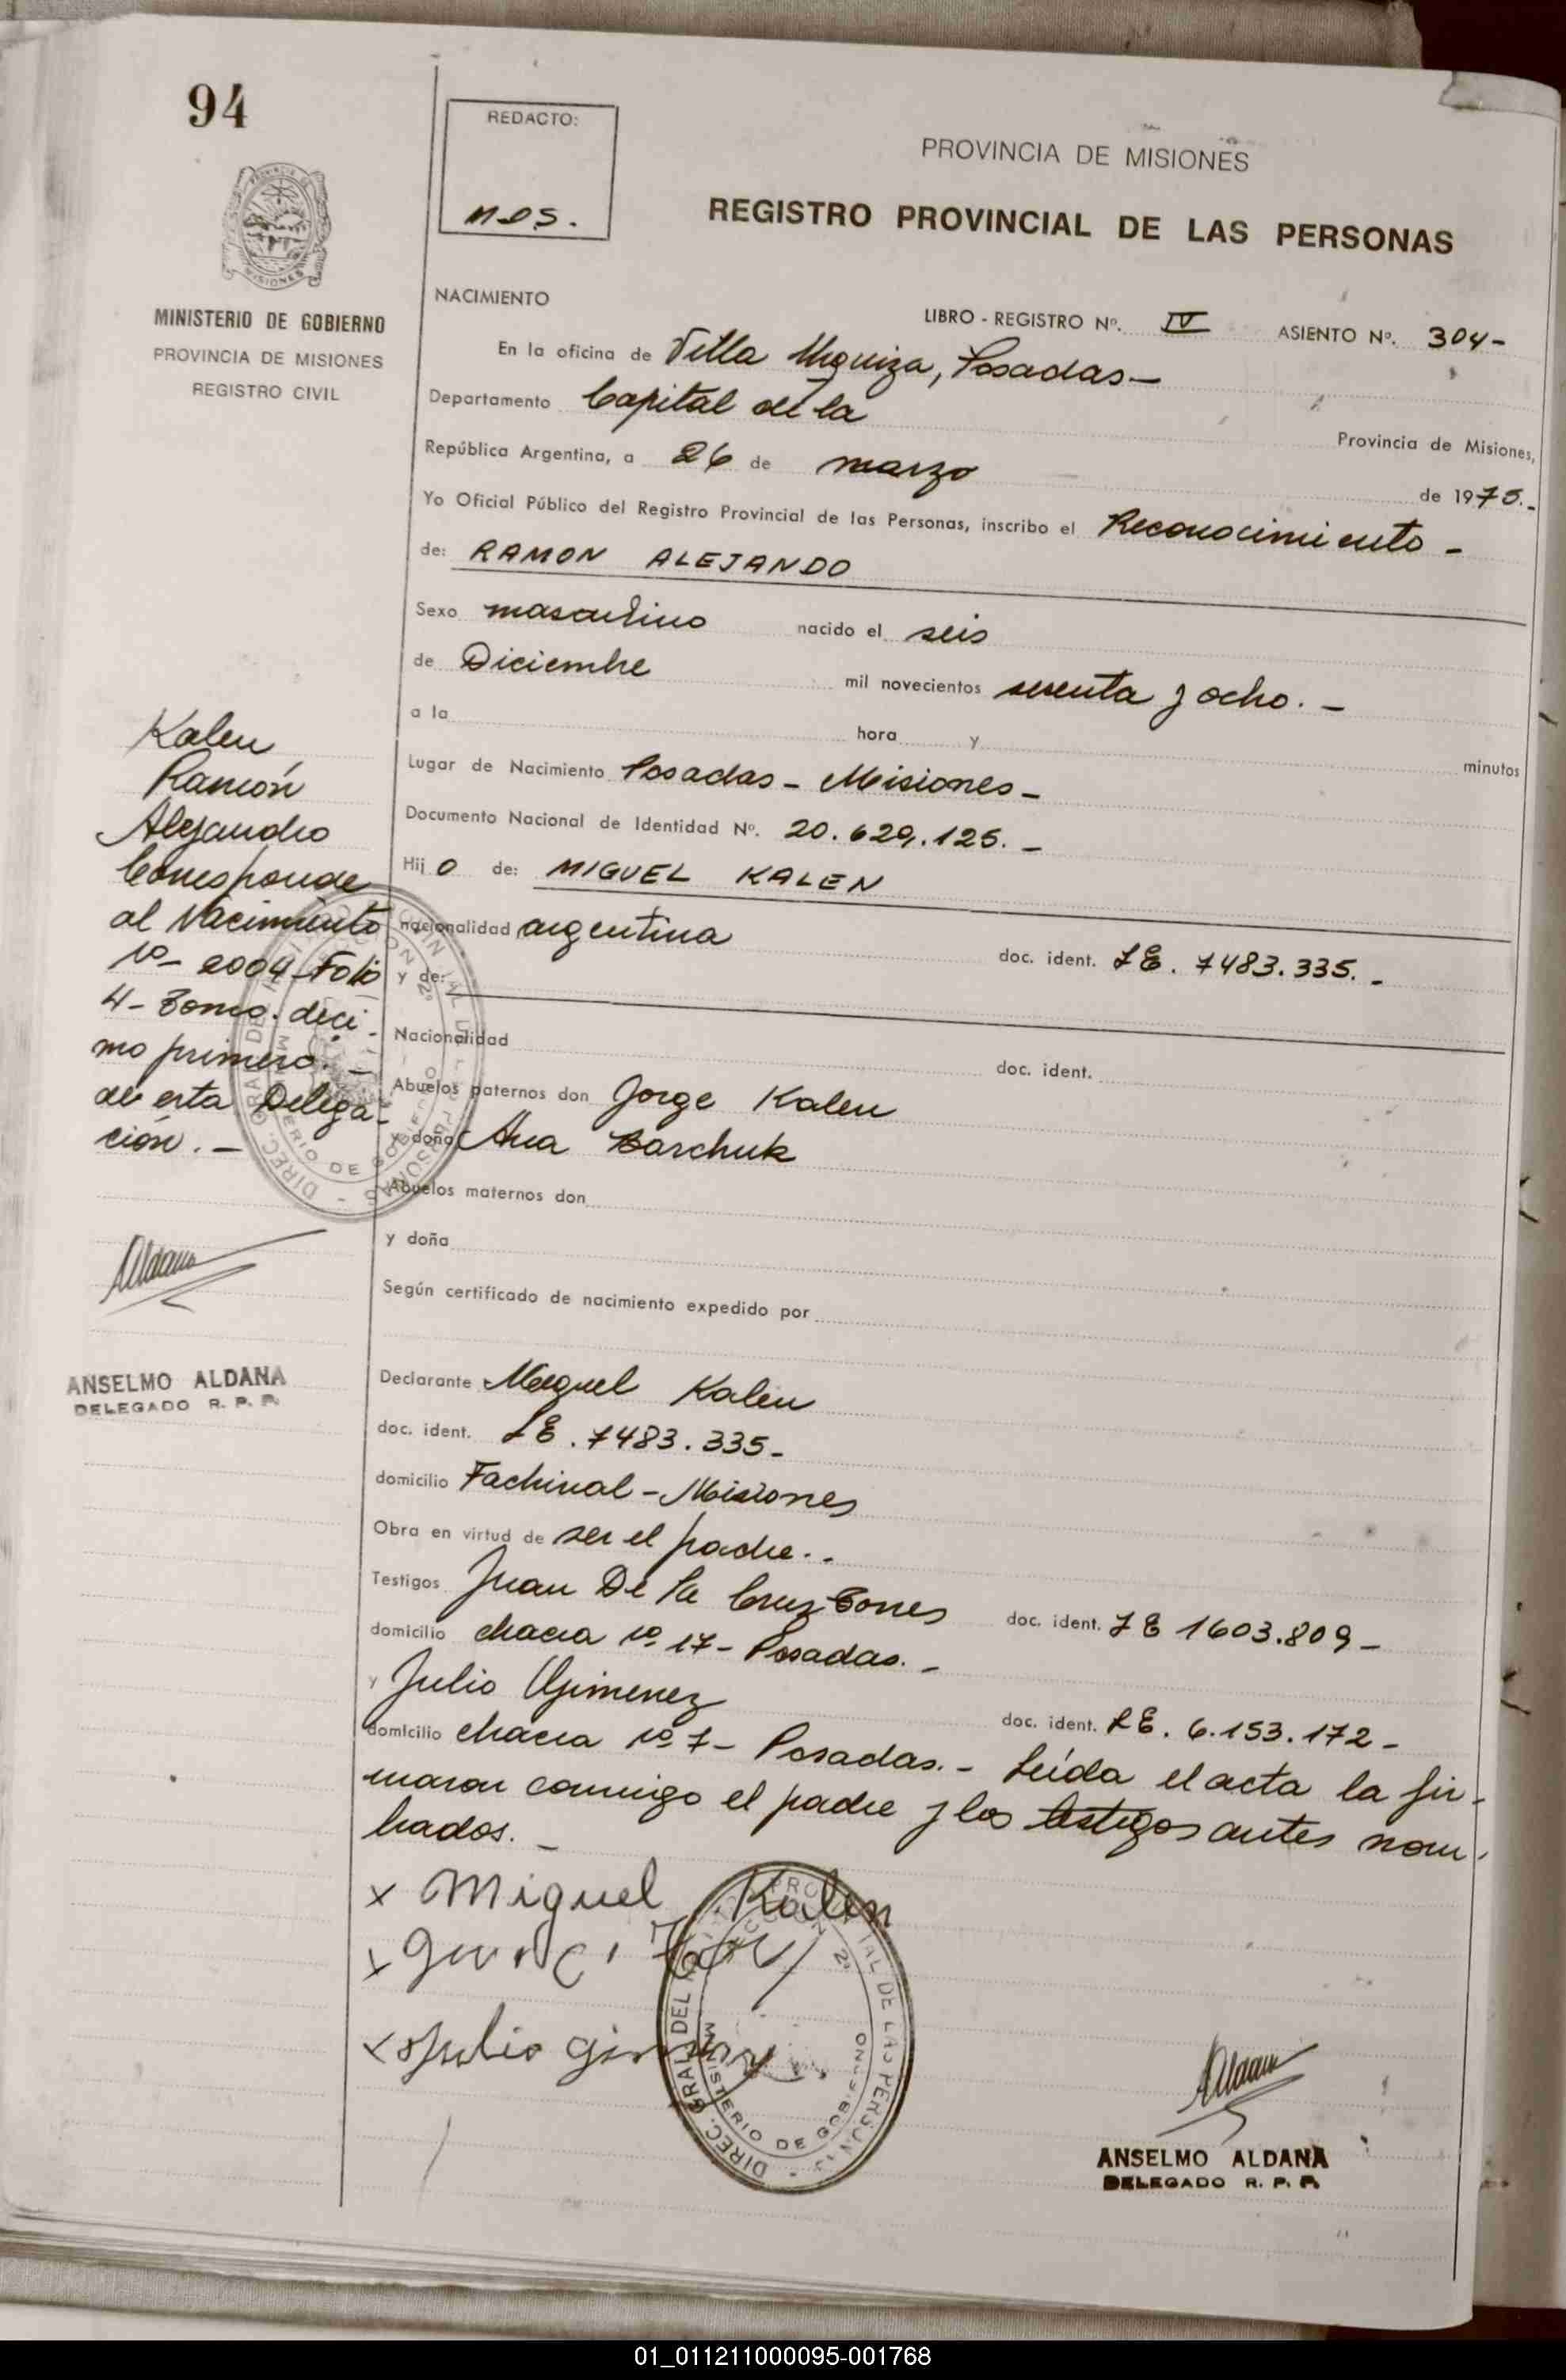 94
REDACTO:
M D S.
PROVINCIA DE MISIONES
REGISTRO PROVINCIAL DE LAS PERSONAS
MISIONES
MINISTERIO DE GOBIERNO
PROVINCIA DE MISIONES
REGISTRO CIVIL
NACIMIENTO
LIBRO - REGISTRO Nº. IV ASIENTO Nº. 304-
En la oficina de Villa Urquiza, Posadas-
Departamento Capital de la Provincia de Misiones,
República Argentina, a 26 de marzo de 1975.-
Yo Oficial Público del Registro Provincial de las Personas, inscribo el Reconocimiento -
de: RAMON ALEJANDO
Sexo masculino nacido el seis
de Diciembre mil novecientos sesenta y ocho. -
a la hora y minutos
Lugar de Nacimiento Posadas - Misiones -
Documento Nacional de Identidad Nº. 20.629.125. -
Hij o de: MIGUEL KALEN
nacionalidad argentina doc. ident. LE. 7483.335. -
y de:
Nacionalidad doc. ident.
Abuelos paternos don Jorge Kalen
y doña Ana Barchuk
Abuelos maternos don
y doña
Según certificado de nacimiento expedido por
Kalen,
Ramón
Alejandro
Corresponde
al Nacimiento
Nº- 2004 - Folio
4 - Tomo. déci-
mo primero. -
de esta Delega-
ción. -
Aldana
ANSELMO ALDANA
DELEGADO R. P. P.
Declarante Miguel Kalen
doc. ident. LE. 7483.335-
domicilio Fachinal - Misiones
Obra en virtud de ser el padre. -
Testigos Juan De la Cruz Torres doc. ident. LE 1603.809 -
domicilio chacra Nº 17 - Posadas. -
y Julio Gimenez doc. ident. LE. 6.153.172 -
domicilio chacra Nº 7 - Posadas. - Leída el acta la fir-
maron conmigo el padre y los testigos antes nom-
brados. -
x Miguel Kalen
x
x Julio gimenez
DIREC. GRAL. DEL REGISTRO PROVINCIAL DE LAS PERSONAS
MINISTERIO DE GOBIERNO
SECCION 2ª
Aldana
ANSELMO ALDANA
DELEGADO R. P. P.
01_011211000095-001768